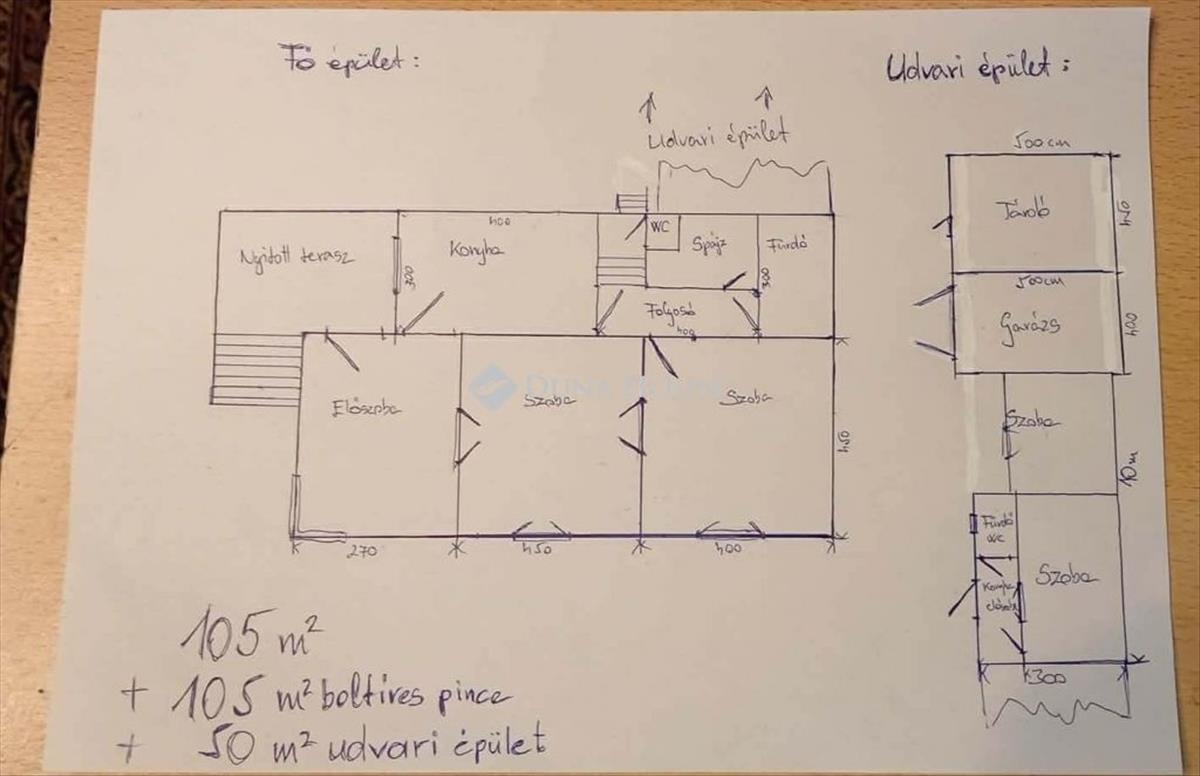 Fő épület:
Udvari épület:
Udvari épület
500 cm
Tároló
450
WC
400
Nyitott terasz
Konyha
Spájz
Fürdő
300
300
Folyosó
400
500 cm
Garázs
400
Előszoba
Szoba
Szoba
DUNA HOUSE
450
Szoba
10 m
270
450
400
Fürdő
WC
Konyha
előszoba
Szoba
300
105 m²
+ 105 m² boltíves pince
+ 50 m² udvari épület